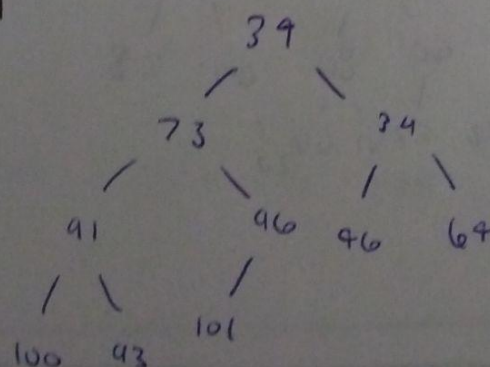 39
73 34
91 96 96 64
100 93 101